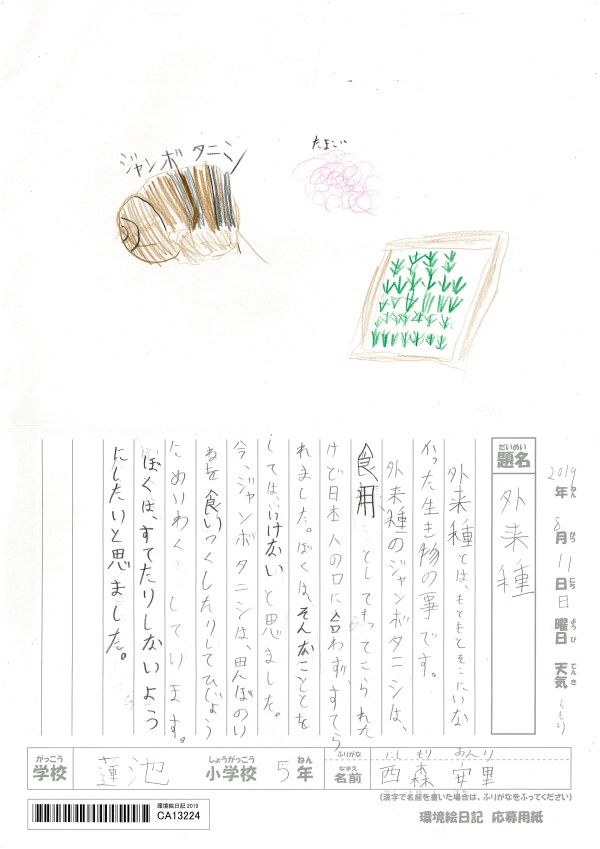 ジャンボタニシ
たまごい
だいめい
題名
外来種
2019年 8月11日 日曜日 天気 くもり
ねん がつ にち ようび てんき
外来種とは、もともとそこにいな
かった生き物の事です。
外来種のジャンボタニシは、
食用としてもってこられた
けど日本人の口に合わず、すてら
れました。ぼくは、そんなことを
しては、いけないと思ました。
今、ジャンボタニシは、田んぼのい
ねを食いつくしたりしてひじょう
にめいわくしてけます。
ぼくは、すてたりしないよう
にしたいと思ました。
がっこう しょうがっこう ねん ふりがな にし もり あんり
学校 蓮池 小学校 5年 なまえ 名前 西森 安里
(漢字で名前を書いた場合は、ふりがなをふってください)
環境絵日記 2019
CA13224
環境絵日記 応募用紙